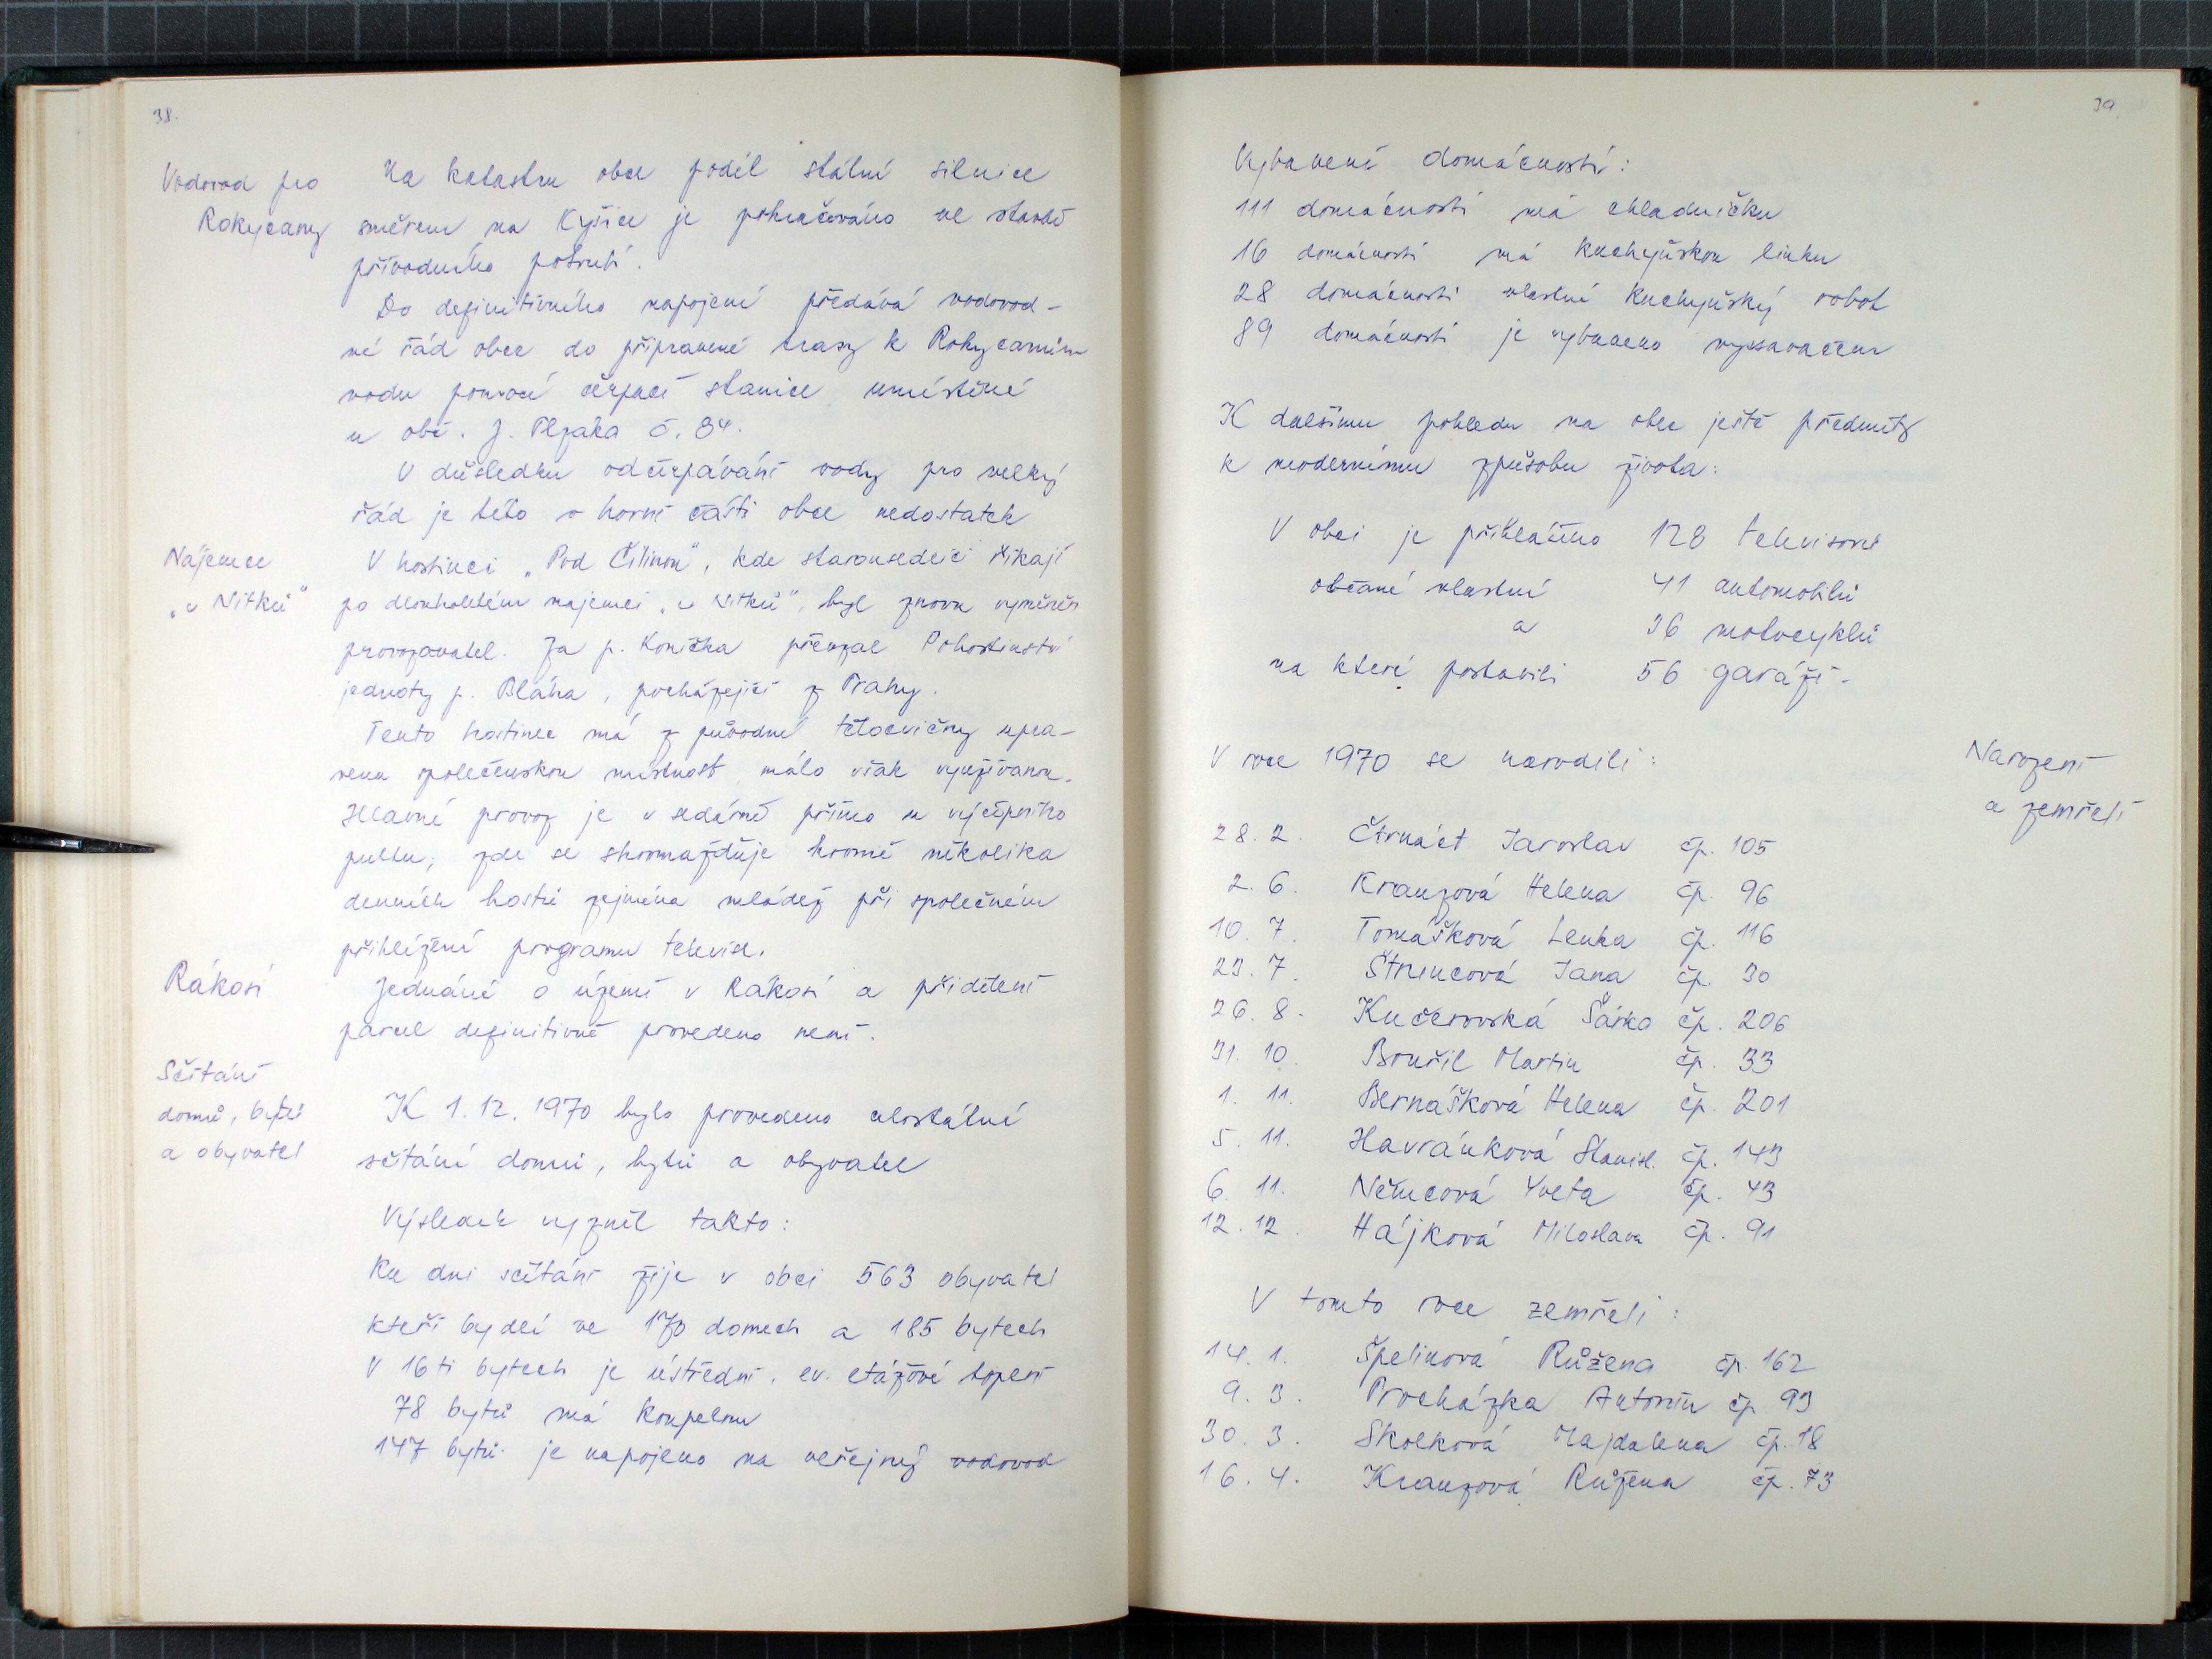 38.
Vodovod pro
Rokycany
Na katastru obce podél státní silnice
směrem na Kyšice je pokračováno ve stavbě
přívodního potrubí.
Do definitivního napojení předává vodovod-
ní řád obce do připravené trasy k Rokycanům
vodu pomocí čerpací stanice umístěné
u obč. J. Plzáka č. 84.
V důsledku odčerpávání vody pro velký
řád je této v horní části obce nedostatek
Nájemce
„u Nitků"
V hostinci „Pod Čilinou", kde starousedlíci říkají
po dlouholetém najemci „u Nitků", byl znovu vyměněn
provozovatel. Za p. Koníčka převzal Pohostinství
jednoty p. Bláha, pocházející z Prahy.
Tento hostinec má z původní tělocvičny upra-
venu společenskou místnost málo však využívanou.
Hlavní provoz je v sedárně přímo u výčepního
pultu, zde se shromažďuje kromě několika
denních hostů zejména mládež při společném
přihlížení programu televise.
Rákosí
Jednání o území v Rákosí a přidělení
parcel definitivně provedeno není.
Sčítání
domů, bytů
a obyvatel
K 1. 12. 1970 bylo provedeno celostátní
sčítání domů, bytů a obyvatel
Výsledek vyzněl takto:
Ku dni sčítání žije v obci 563 obyvatel
kteří bydlí ve 170 domech a 185 bytech
V 16ti bytech je ústřední. ev. etážové topení
78 bytů má koupelnu
147 bytů je napojeno na veřejný vodovod
39.
Vybavení domácností:
111 domácností má chladničku
16 domácností má kuchyňskou linku
28 domácností vlastní kuchyňský robot
89 domácností je vybaveno vysavačem
K dalšímu pohledu na obec ještě předměty
k modernímu způsobu života:
V obci je přihlášeno 128 televisorů
občané vlastní 41 automobilů
a 36 motocyklů
na které postavili 56 garáží.
V roce 1970 se narodili:
Narození
a zemřelí
28. 2. Čtrnáct Jaroslav čp. 105
2. 6. Kranzová Helena čp. 96
10. 7. Tomášková Lenka čp. 116
23. 7. Štruncová Jana čp. 30
26. 8. Kučerovská Šárka čp. 206
31. 10. Bouřil Martin čp. 33
1. 11. Bernášková Helena čp. 201
5. 11. Havránková Stanisl. čp. 143
6. 11. Němcová Yveta čp. 43
12. 12. Hájková Miloslava čp. 91
V tomto roce zemřeli:
14. 1. Špelinová Růžena čp. 162
9. 3. Procházka Antonín čp 93
30. 3. Skolková Majdalena čp. 18
16. 4. Kranzová Růžena čp. 73